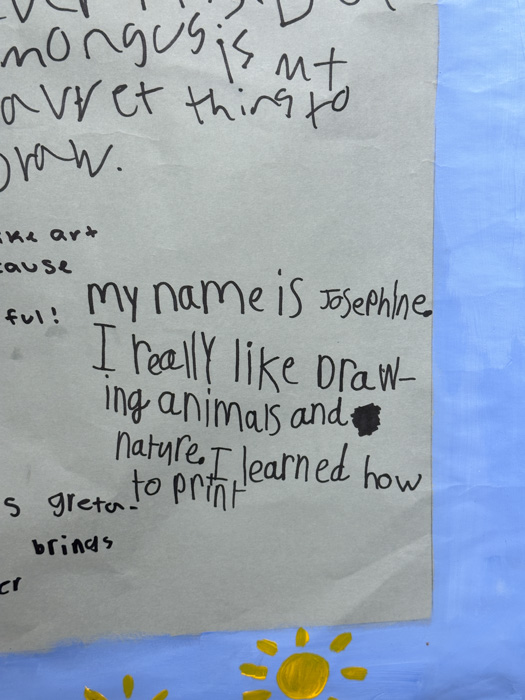 mongus is
mt
avret thing to
Draw.
art
ful!
my name is Josephine.
I really like Draw-
ing animals and
nature. I learned how
to print
s greta.
brinds